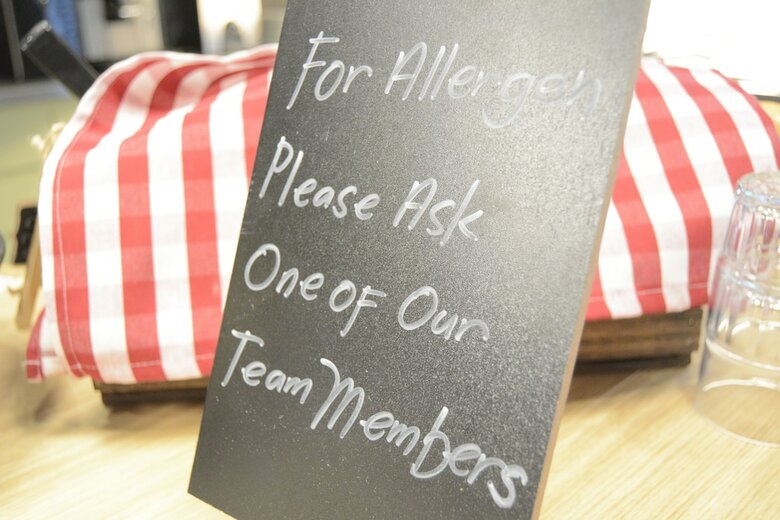 For Allergen
Please Ask
One of Our
Team Members